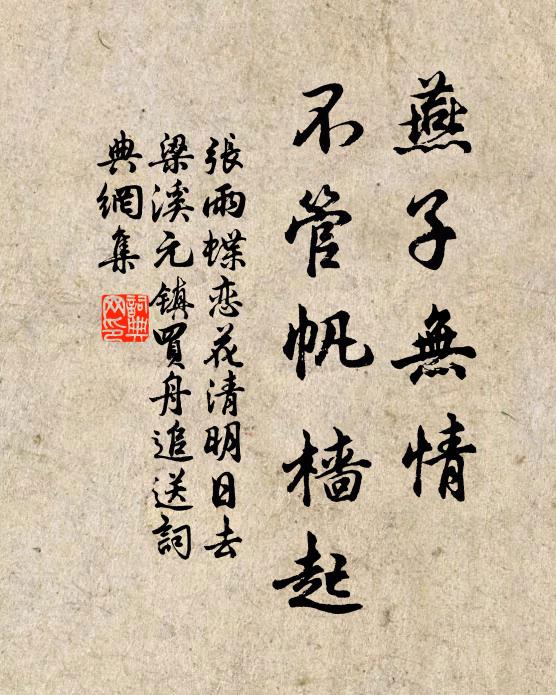 燕子無情
不管帆檣起
張雨蝶恋花清明日去
梁溪元鎮買舟追送詞
典網集
詞典
网印